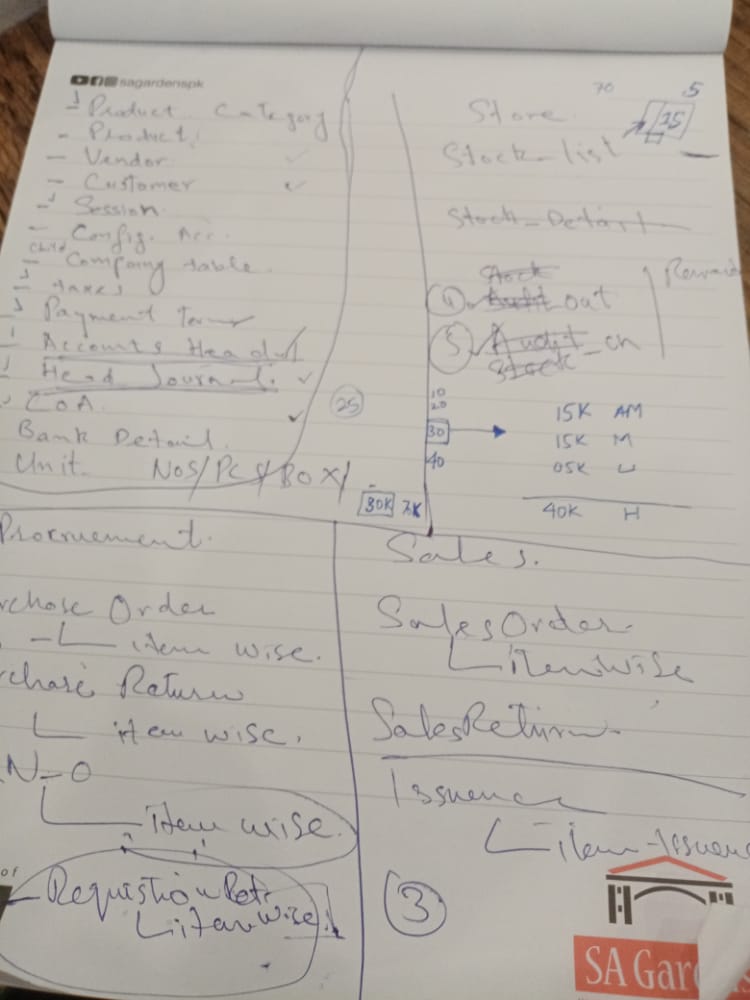 sagardenspk
Product Category
- Product
- Vendor
- Customer
- Session
- Config. Acc.
Child
- Company table.
- taxes
Payment Terms
- Accounts Head
Head Journal.
COA.
Bank Detail.
Unit. NOS/PCS/BOX/
25
70
5
35
Store.
Stock_list
Stock_Detail
Stock
4 Audit out
5 Audit_on
Stock
10
20
30
40
15K AM
15K M
05K
40K H
30K 7K
Procruement.
rchase Order
item wise.
rchase Return
item wise.
N-O
item wise.
Requistion Ret.
item wise.
Sales.
Sales Order
Item wise
Sales Return
Issuence
item-Issuen
3
of
SA Gar